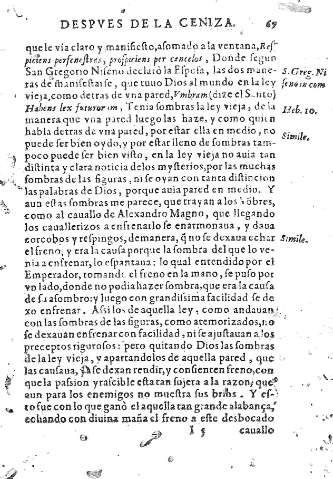 DESPVES DE LA CENIZA. 69
que le via claro y manifiesto, asomado a la ventana, Res
piciens per fenestras, prospiciens per cancelos, Donde segun
San Gregorio Niseno declarò la Esposa, las dos mane-
ras de manifestarse, que tuuo Dios al mundo en la ley
vieja, como detras de vna pared, Vmbram (dize el Santo)
Habens lex futurorum, Tenia sombras la ley vieja, de la
manera que vna pared luego las haze, y como quien
habla detras de vna pared, por estar ella en medio, no
puede ser bien oydo, y por estar lleno de sombras tam-
poco puede ser bien visto, en la ley vieja no auia tan
distinta y clara noticia de los mysterios, por las muchas
sombras de las figuras, ni se oyan con tanta distincion
las palabras de Dios, porque auia pared en medio. Y
aun estas sombras me parece, que trayan a los hõbres,
como al cauallo de Alexandro Magno, que llegando
los cauallerizos a enfrenarlo se enarmonaua, y daua
corcobos y respingos, de manera, q̃ no se dexaua echar
el freno, y era la causa porque la sombra del que lo ve-
nia a enfrenar, lo espantaua: lo qual entendido por el
Emperador, tomando el freno en la mano, se puso por
vn lado, donde no podia hazer sombra, que era la causa
de su asombro: y luego con grandissima facilidad se de
xo enfrenar. Assi los de aquella ley, como andauan
con las sombras de las figuras, como atemorizados, no
se dexauan enfrenar con facilidad, ni se ajustauan a los
preceptos rigurosos: pero quitando Dios las sombras
de la ley vieja, y apartandolos de aquella pared, que
las causaua, ya se dexan rendir, y consienten freno, con
que la passion yrascible esta tan sojeta a la razon, que
aun para los enemigos no muestra sus brios. Y es-
to fue con lo que ganò el aquella tan grande alabança,
echando con diuina maña el freno a este desbocado
I 5 cauallo
S. Greg. Ni
seno in com
Heb. 10.
Simile.
Simile.